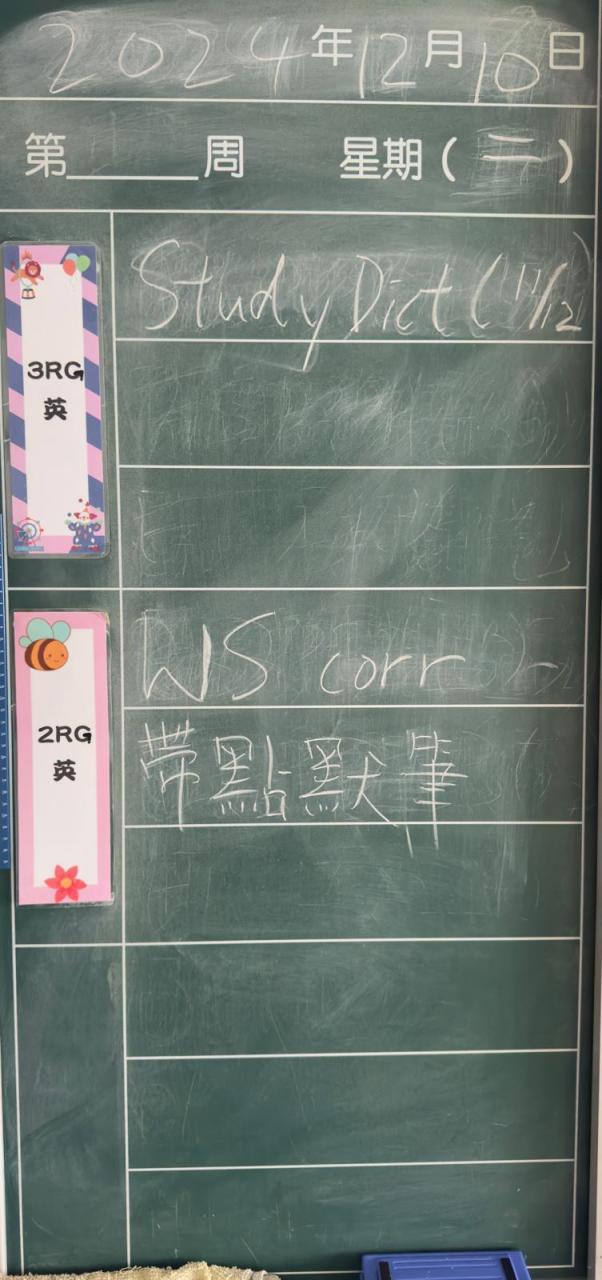 2024年12月10日
第______周 星期(二)
3RG
英
Study Dict (11/12)
2RG
英
WS corr
帶點默筆